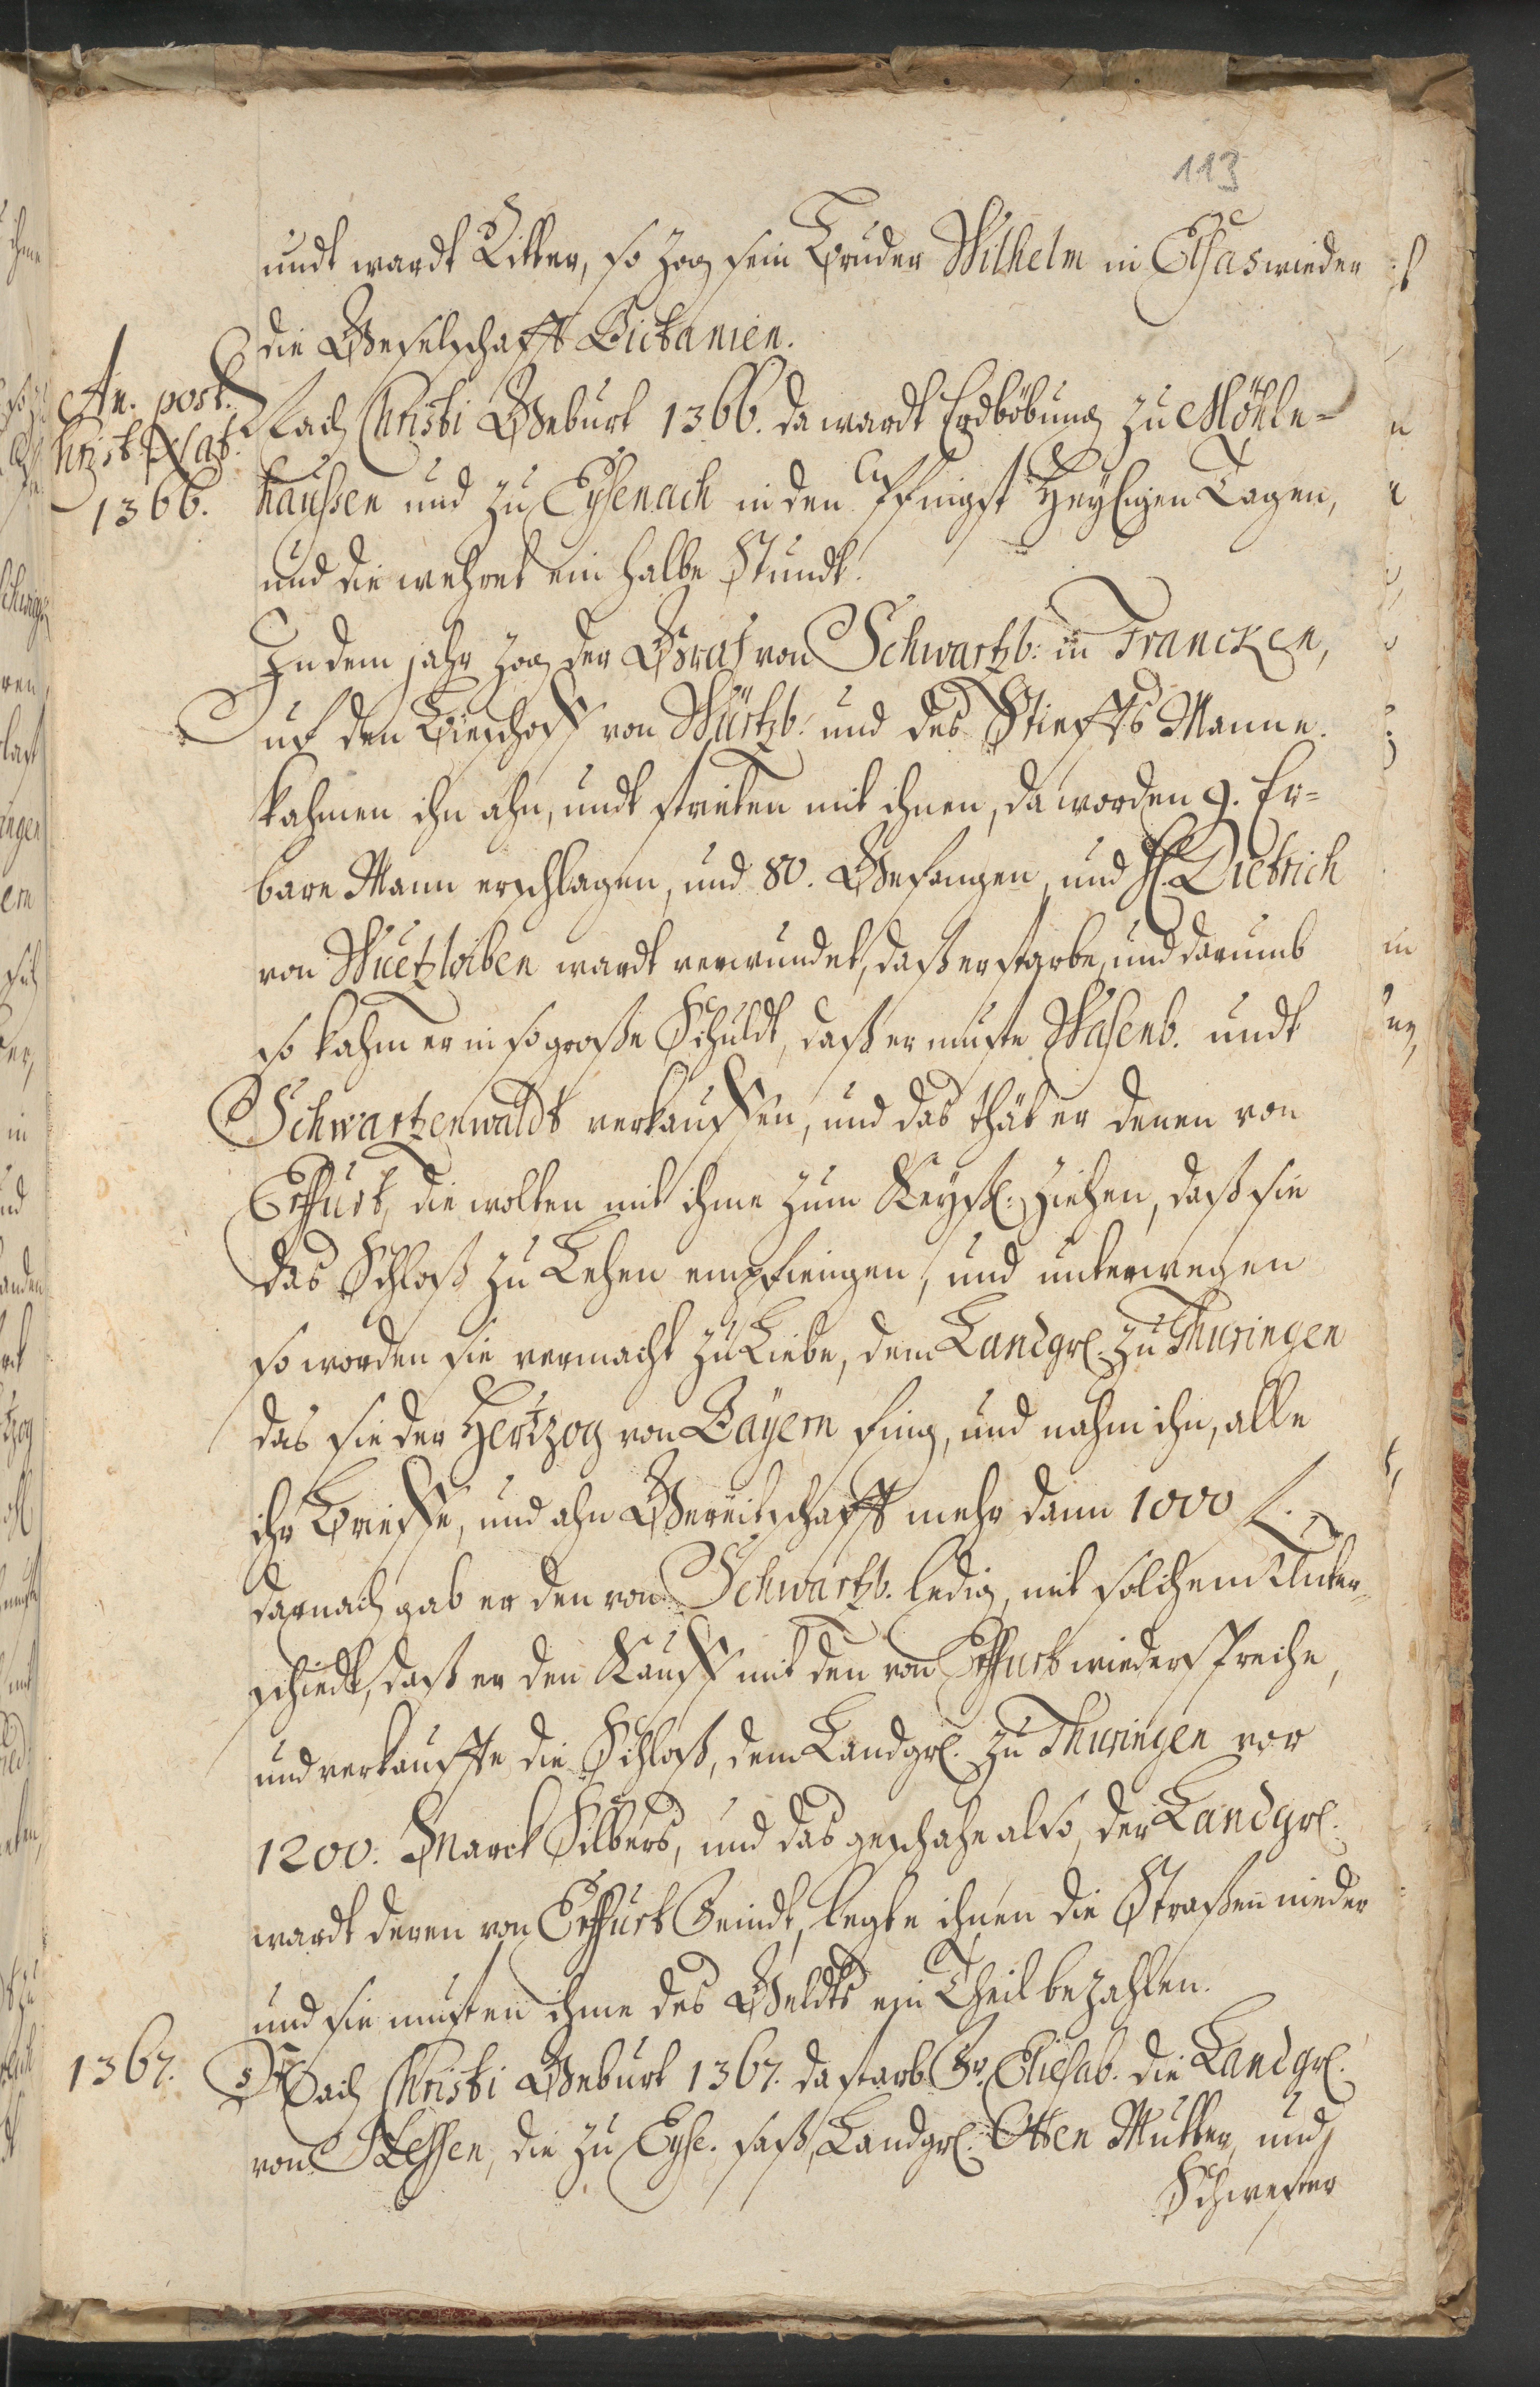 113
undt wardt Ritter, so zog sein Bruder Wilhelm in Elsas wieder
die Geselschafft Bictanien.
An. post.
Christ. Nat.
1366.
Nach Christi Geburt 1366. da wardt Erdböbung zu Möhle=
haussen und zu Eysenach in den Pfingst Heyligen Tagen,
und die wehret ein halbe Stundt.
In dem jahr zog der Graf von Schwartzb: in Francken,
uf den Bieschoff von Würtzb: und des Stieffts Manne.
kahmen ihn ahn, undt strieten mit ihnen, da worden 9. Er=
bare Mann erschlagen, und 80. Gefangen, und H. Dietrich
von Wuetzloiben wardt verwundet, daß er starbe, und darumb
so kahm er in so große Schuldt, daß er muste Wasenb. undt
Schwartzenwaldt verkauffen, und das thät er denen von
Erffurt, die wolten mit ihme zum Keyß. ziehen, daß sie
das Schloß zu Lehen empfiengen, und unterwegen
so worden sie vermacht zu Liebe, dem Landgr. zu Thuringen
das sie der Hertzog von Bayern fing, und nahm ihn, alle
ihr Brieffe, und ahn Gereitschafft mehr dann 1000 fl.
darnach gab er den von Schwartzb. ledig, mit solchem Unter=
schiedt, daß er den Kauff mit den von Erffurt wiederspreche,
und verkauffte die Schloß, dem Landgr. zu Thuringen vor
1200. Marck Silbers, und das geschahe also, der Landgr.
wardt deren von Erffurt Feindt, legte ihnen die Straßen nieder
und sie musten ihme des Geldts ein Theil bezahlen.
1367.
Nach Christi Geburt 1367. da starb Fr. Eliesab. die Landgr.
von Hessen, die zu Eyse. saß, Landgr. Otten Mutter, und
Schwester